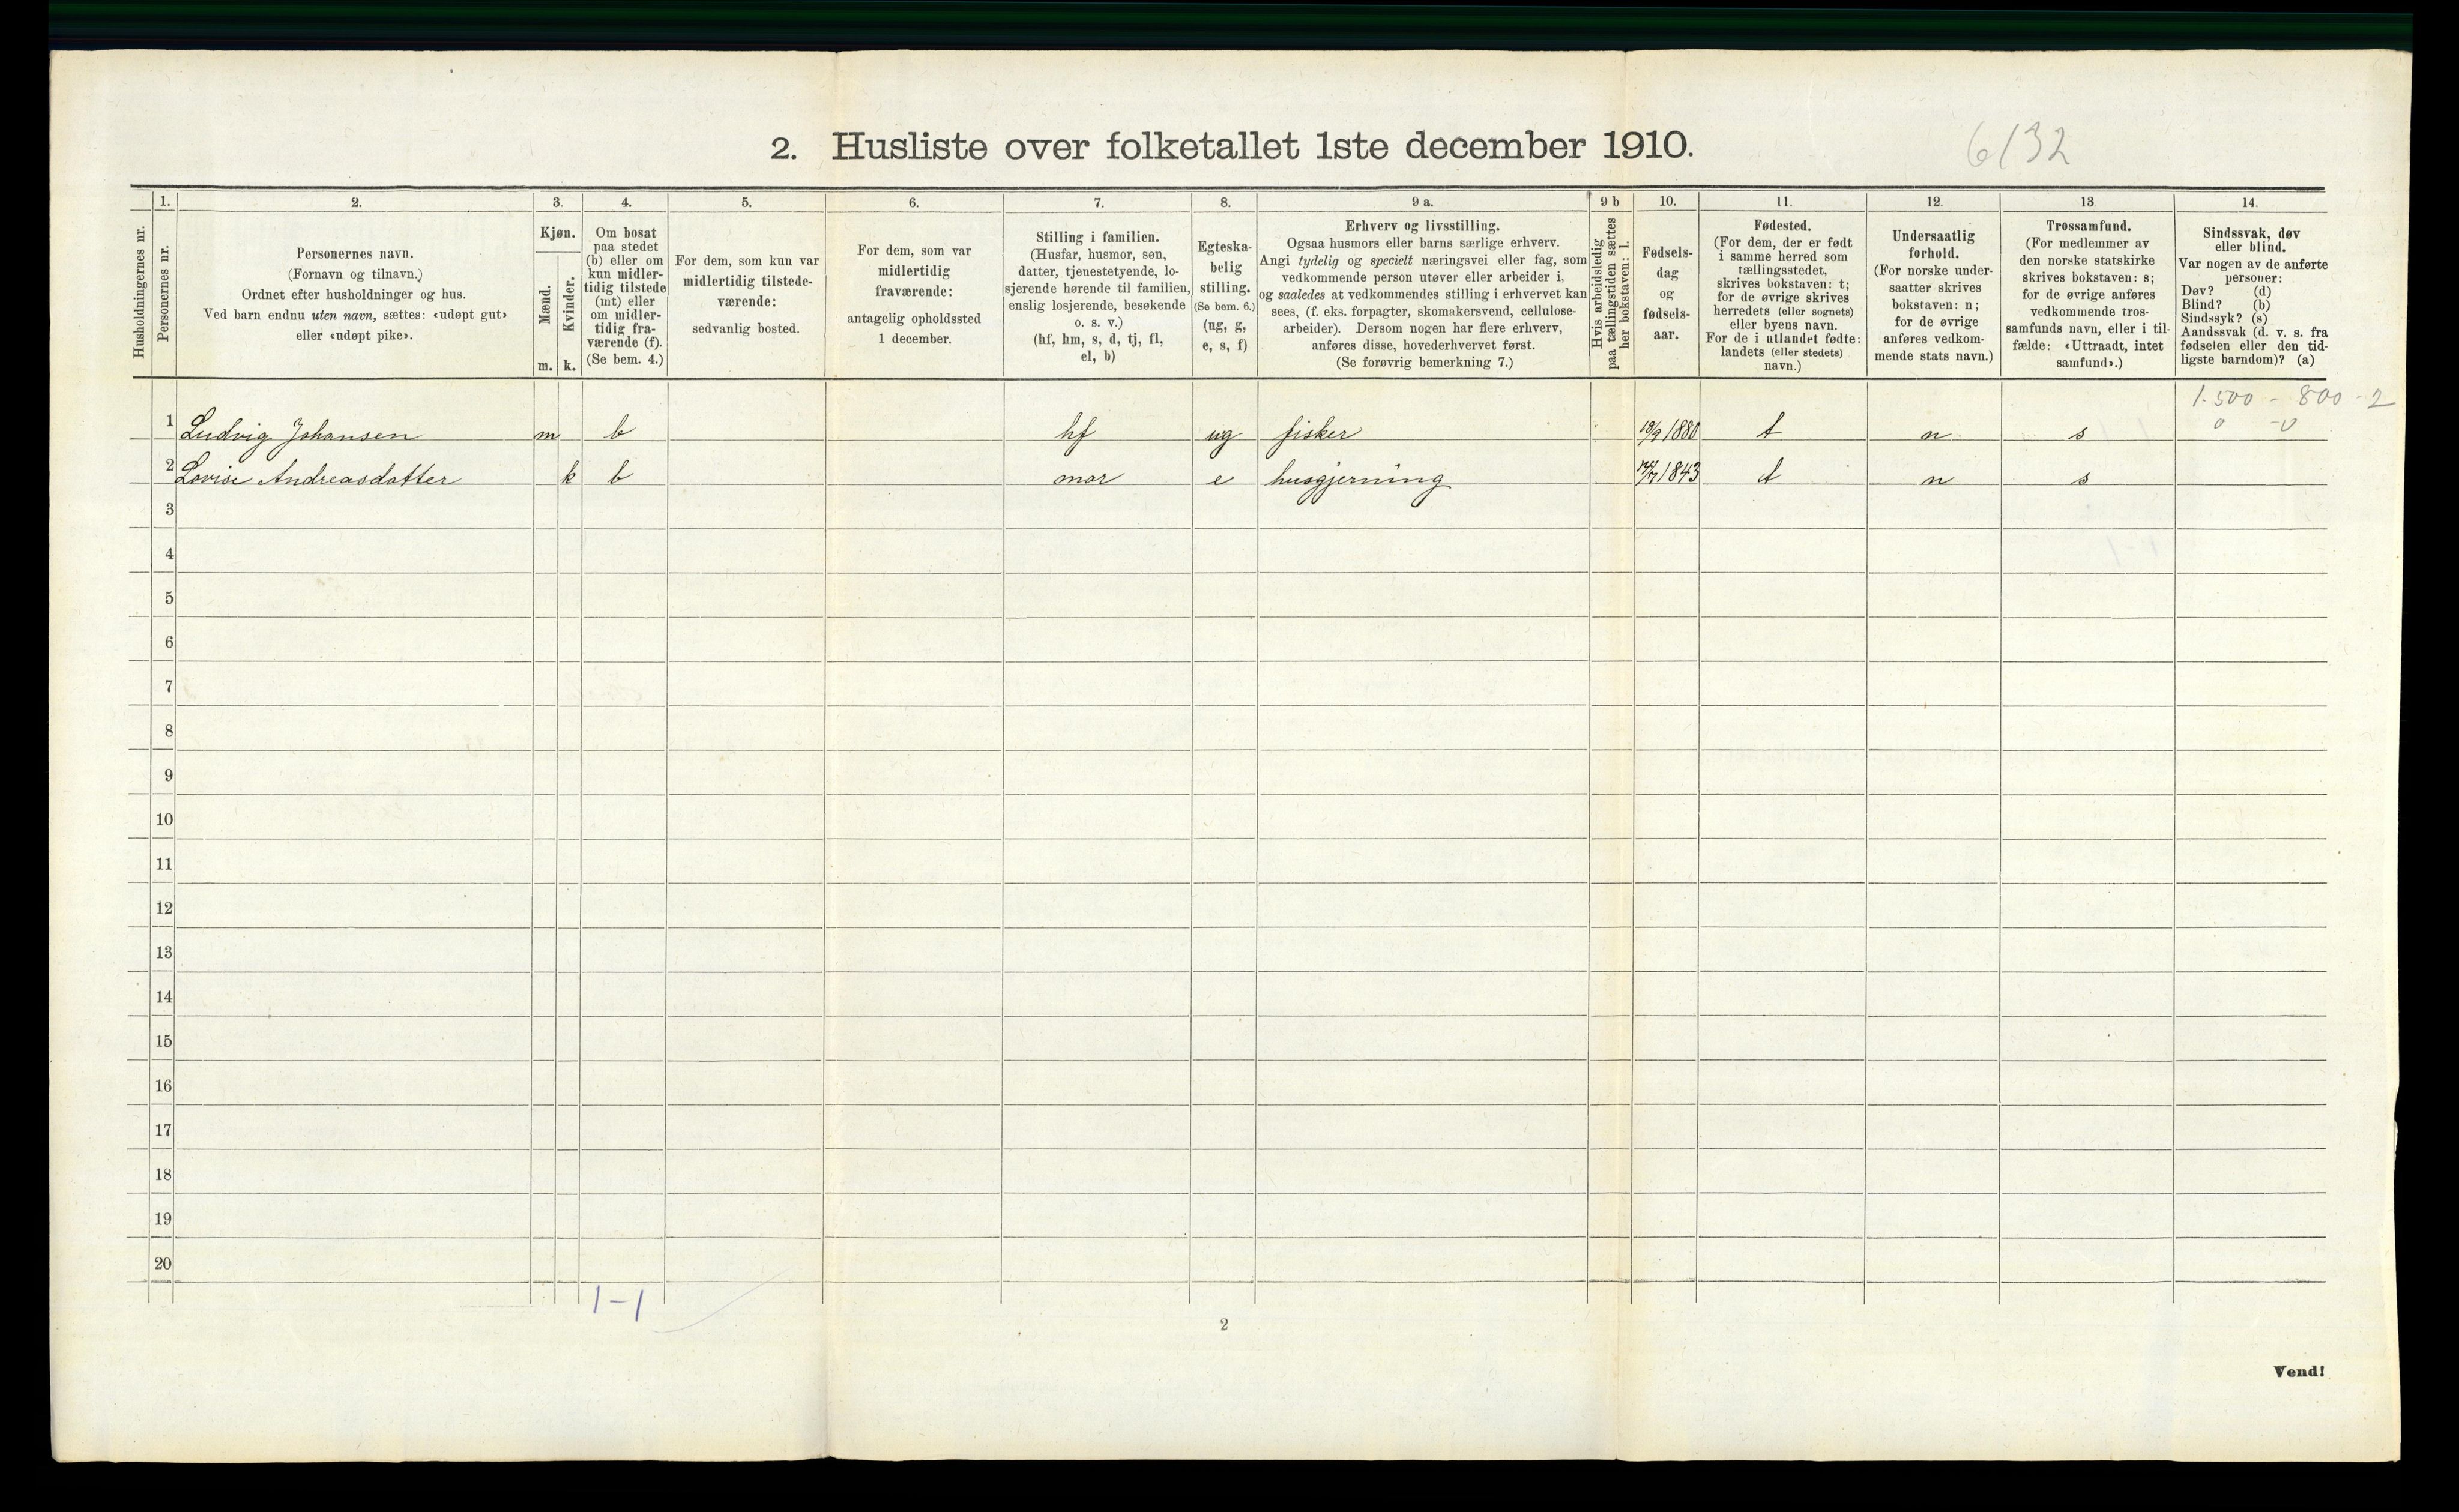 2. Husliste over folketallet 1ste december 1910.
6132
Husholdningernes nr.
1.
Personernes nr.
2.
Personernes navn.
(Fornavn og tilnavn.)
Ordnet efter husholdninger og hus.
Ved barn endnu uten navn, sættes: «udøpt gut»
eller «udøpt pike».
3.
Kjøn.
Mænd.
Kvinder.
m.
k.
4.
Om bosat
paa stedet
(b) eller om
kun midler-
tidig tilstede
(mt) eller
om midler-
tidig fra-
værende (f).
(Se bem. 4.)
5.
For dem, som kun var
midlertidig tilstede-
værende:
sedvanlig bosted.
6.
For dem, som var
midlertidig
fraværende:
antagelig opholdssted
1 december.
7.
Stilling i familien.
(Husfar, husmor, søn,
datter, tjenestetyende, lo-
sjerende hørende til familien,
enslig losjerende, besøkende
o. s. v.)
(hf, hm, s, d, tj, fl,
el, b)
8.
Egteska-
belig
stilling.
(Se bem. 6.)
(ug, g,
e, s, f)
9 a.
Erhverv og livsstilling.
Ogsaa husmors eller barns særlige erhverv.
Angi tydelig og specielt næringsvei eller fag, som
vedkommende person utøver eller arbeider i,
og saaledes at vedkommendes stilling i erhvervet kan
sees, (f. eks. forpagter, skomakersvend, cellulose-
arbeider). Dersom nogen har flere erhverv,
anføres disse, hovederhvervet først.
(Se forøvrig bemerkning 7.)
9 b
Hvis arbeidsledig
paa tællingstiden sættes
her bokstaven: l.
10.
Fødsels-
dag
og
fødsels-
aar.
11.
Fødested.
(For dem, der er født
i samme herred som
tællingsstedet,
skrives bokstaven: t;
for de øvrige skrives
herredets (eller sognets)
eller byens navn.
For de i utlandet fødte:
landets (eller stedets)
navn.)
12.
Undersaatlig
forhold.
(For norske under-
saatter skrives
bokstaven: n;
for de øvrige
anføres vedkom-
mende stats navn.)
13
Trossamfund.
(For medlemmer av
den norske statskirke
skrives bokstaven: s;
for de øvrige anføres
vedkommende tros-
samfunds navn, eller i til-
fælde: «Uttraadt, intet
samfund».)
14.
Sindssvak, døv
eller blind.
Var nogen av de anførte
personer:
Døv? (d)
Blind? (b)
Sindssyk? (s)
Aandssvak (d. v. s. fra
fødselen eller den tid-
ligste barndom)? (a)
1.500 - 800 - 2
0 - 0
1 Ludvig Johansen m b hf ug fisker 18/9 1880 t n s
2 Lovise Andreasdatter k b mor e husgjerning 1843 t n s
3
4
5
6
7
8
9
10
11
12
13
14
15
16
17
18
19
20
1-1
2
Vend!